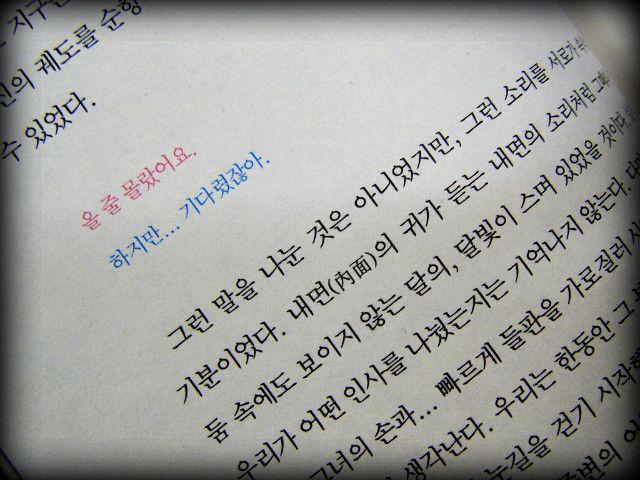 지구는
신의 궤도를 순항
수 있었다.
올 줄 몰랐어요.
하지만... 기다렸잖아.
그런 말을 나눈 것은 아니었지만, 그런 소리를 서로가 속
기분이었다. 내면(內面)의 귀가 듣는 내면의 소리처럼 그
둠 속에도 보이지 않는 달의, 달빛이 스며 있었을 것이다.
우리가 어떤 인사를 나눴는지는 기억나지 않는다.
그녀의 손과... 빠르게 들판을 가로질러
생각난다. 우리는 한동안 그
눈길을 걷기 시작
주변의